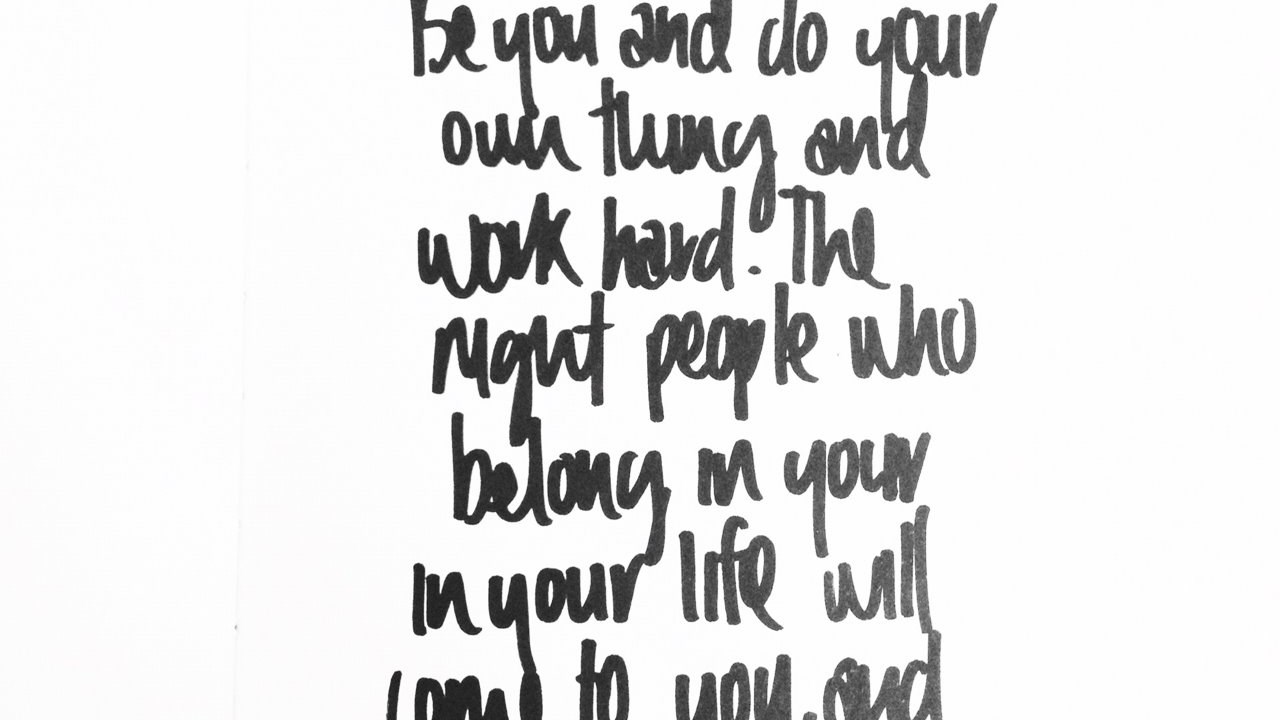 Be you and do your
own thing and
work hard. The
right people who
belong in your
in your life will
come to you, and